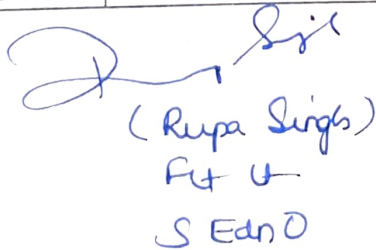 (Rupa Singh)
Flt Lt
S Edn O